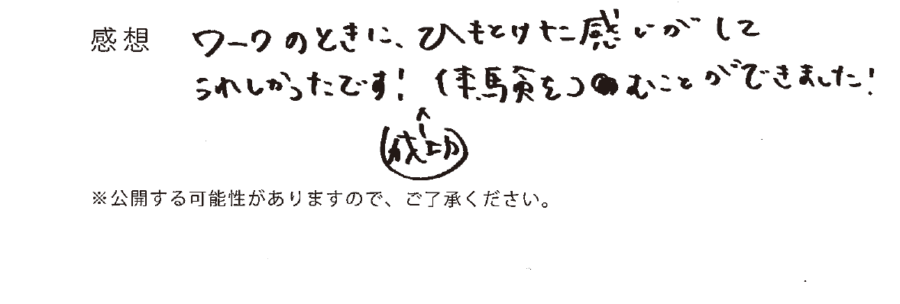 感想 ワークのときに、ひもとけた感じがして
うれしかったです! 体験をつむことができました!
成功
※公開する可能性がありますので、ご了承ください。